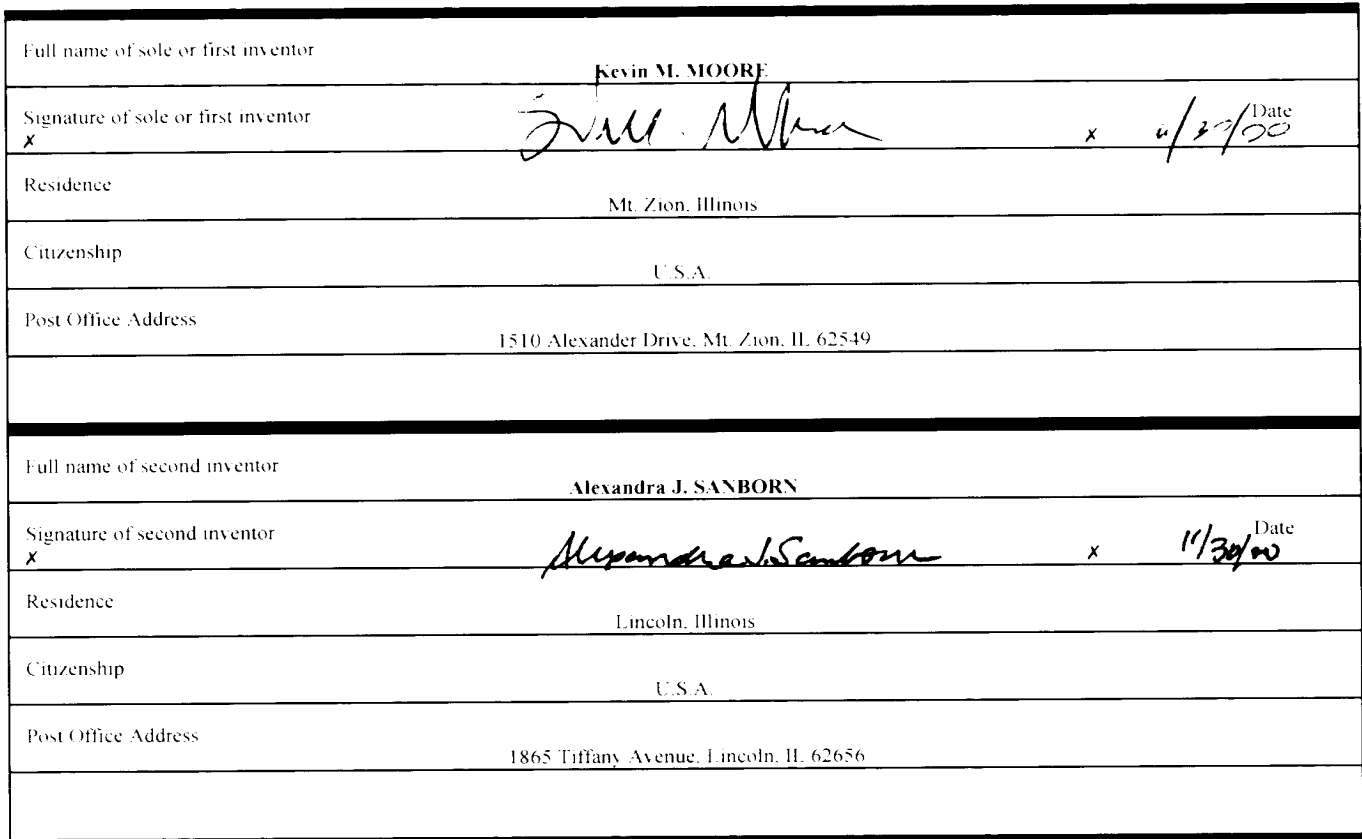 Full name of sole or first inventor
Kevin M. MOORE
Signature of sole or first inventor
Date
x x 11/30/00
Residence
Mt. Zion, Illinois
Citizenship
U.S.A.
Post Office Address
1510 Alexander Drive, Mt. Zion, IL 62549
Full name of second inventor
Alexandra J. SANBORN
Signature of second inventor
Date
x Alexandra J. Sanborn x 11/30/00
Residence
Lincoln, Illinois
Citizenship
U.S.A.
Post Office Address
1865 Tiffany Avenue, Lincoln, IL 62656